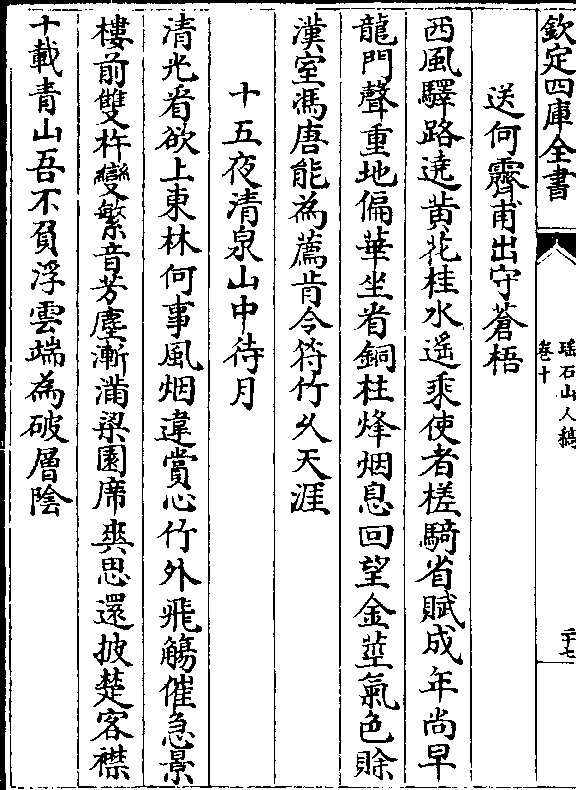 欽定四庫全書
瑶石山人稿
卷十
二十七
送何霽甫出守蒼梧
西風驛路遶黄花桂水遥乘使者槎騎省賦成年尚早
龍門聲重地偏華坐看銅柱烽烟息回望金莖氣色賒
漢室馮唐能為薦肯令符竹乆天涯
十五夜清泉山中待月
清光看欲上東林何事風烟違賞心竹外飛觴催急景
樓前雙杵變繁音芳塵漸滿梁園席爽思還披楚客襟
十載青山吾不負浮雲端為破層陰